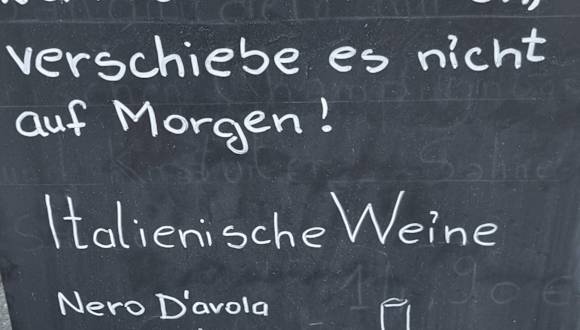 verschiebe es nicht
auf Morgen!
Italienische Weine
Nero D'avola